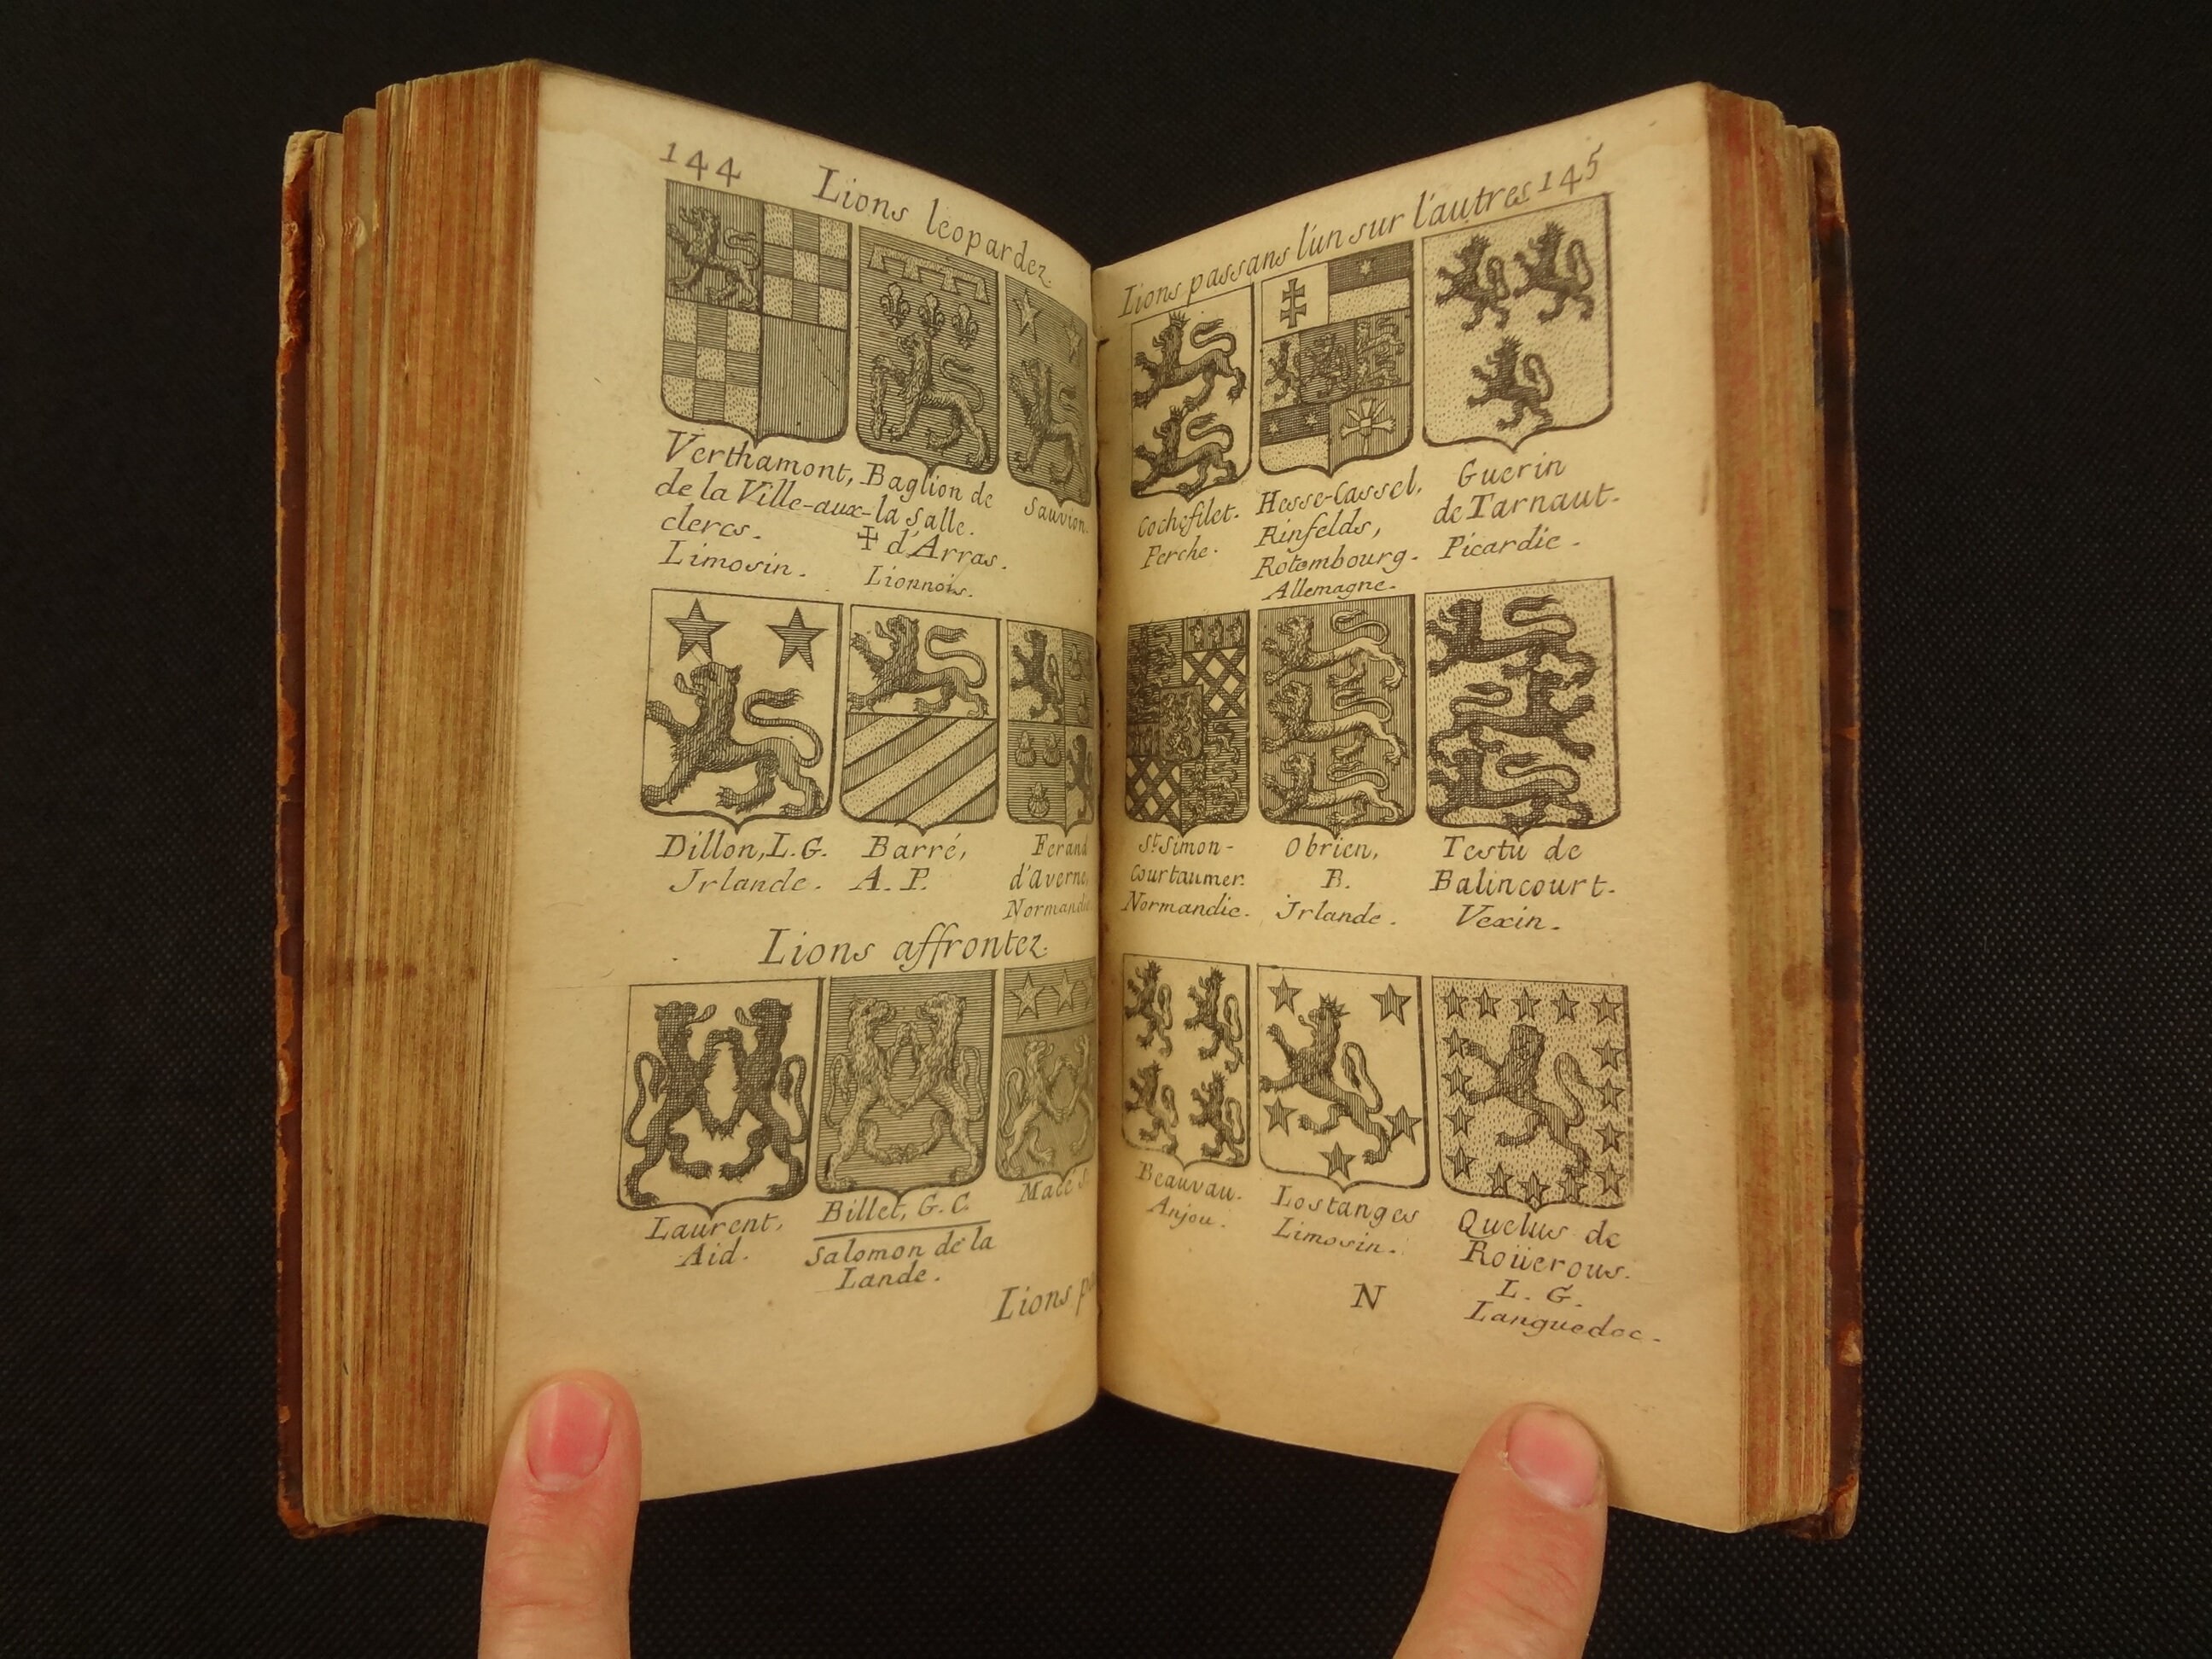 144 Lions leopardez.
Verthamont,
de la Ville-aux-
clercs.
Limosin.
Baglion de
la Salle.
✠ d'Arras.
Lionnois.
Sauvion.
Dillon, L.G.
Jrlande.
Barré,
A. P.
Ferand
d'Averne,
Normandie
Lions affrontez.
Laurent,
Aid.
Billet, G. C.
Salomon de la
Lande.
Macé
Lions
Lions passans l'un sur l'autres 145
Cochefilet.
Perche.
Hesse-Cassel,
Rinfelds,
Rotembourg.
Allemagne.
Guerin
de Tarnaut.
Picardie.
St. Simon-
Courtaumer.
Normandie.
Obrien,
B.
Jrlande.
Testu de
Balincourt.
Vexin.
Beauvau.
Anjou.
Lostanges
Limosin.
Quelus de
Roüerous.
L. G.
Languedoc.
N